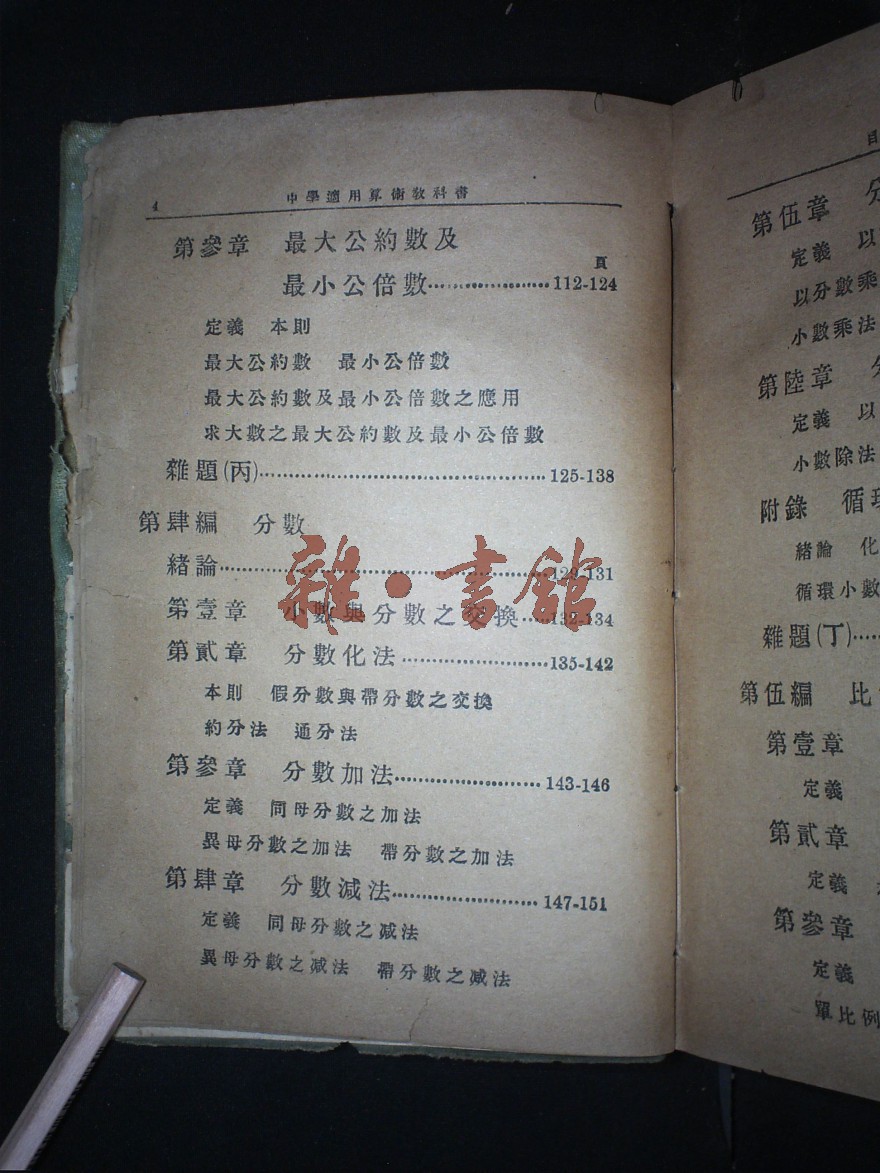 4
中學適用算術教科書
第參章 最大公約數及
頁
最小公倍數··················112-124
定義 本則
最大公約數 最小公倍數
最大公約數及最小公倍數之應用
求大數之最大公約數及最小公倍數
雜題(丙)··················125-138
第肆編 分數
緒論··················129-131
第壹章 小數與分數之交換·····132-134
第貳章 分數化法··················135-142
本則 假分數與帶分數之交換
約分法 通分法
第參章 分數加法··················143-146
定義 同母分數之加法
異母分數之加法 帶分數之加法
第肆章 分數減法··················147-151
定義 同母分數之減法
異母分數之減法 帶分數之減法
雜·書館
目
第伍章 分
定義 以
以分數乘
小數乘法
第陸章 分
定義 以
小數除法
附錄 循環
緒論 化
循環小數
雜題(丁)·····
第伍編 比
第壹章
定義
第貳章
定義
第參章
定義
單比例